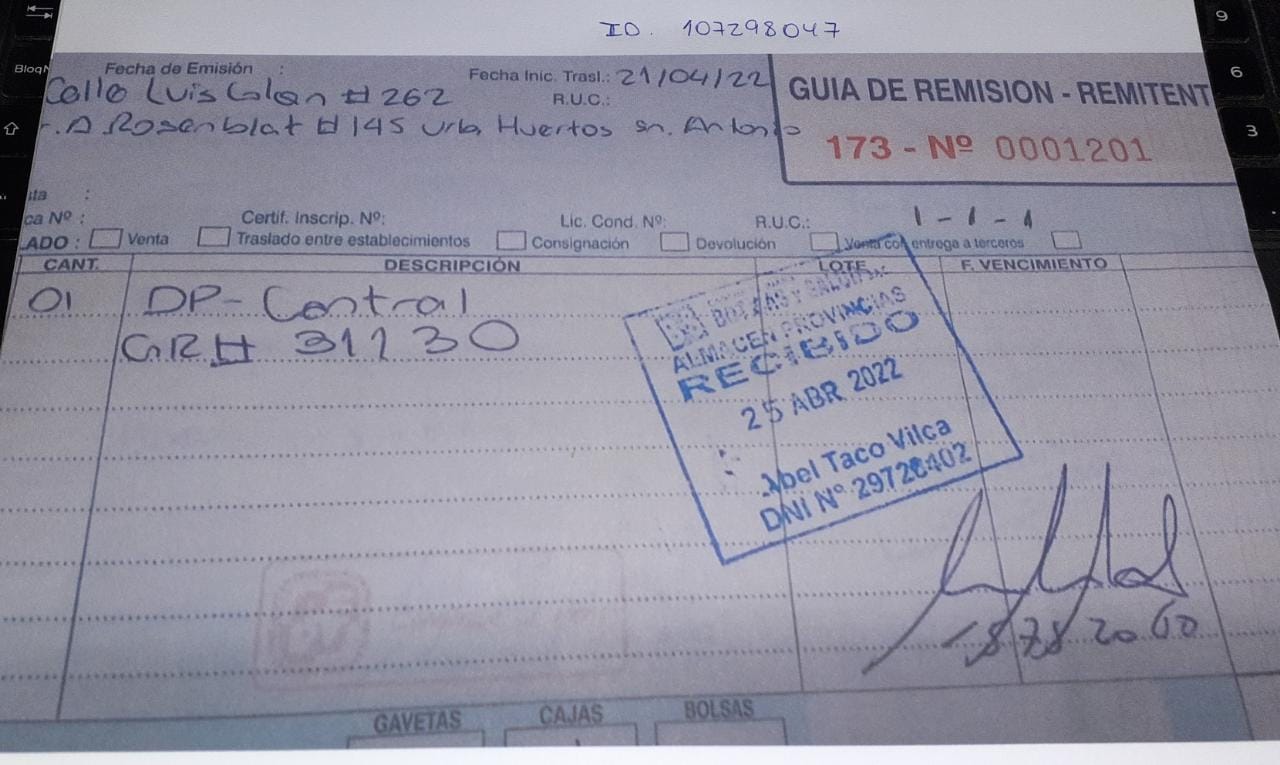 ID. 107298047
Fecha de Emisión :
Fecha Inic. Trasl.: 21/04/22
Calle Luis Colan # 262
R.U.C.:
r. A Rosenblat # 145 Urb. Huertos sn. Antonio
GUIA DE REMISION - REMITENT
173 - Nº 0001201
ta :
ca Nº :
Certif. Inscrip. Nº:
Lic. Cond. Nº:
R.U.C.:
1 - 1 - 1
LADO : Venta Traslado entre establecimientos Consignación Devolución Venta con entrega a terceros
CANT. DESCRIPCIÓN LOTE F. VENCIMIENTO
01 DP- Central
GR# 31130
ALMACEN PROVINCIAS
RECIBIDO
25 ABR 2022
Abel Taco Vilca
DNI Nº 29728402
GAVETAS CAJAS BOLSAS
BloqN
9
6
3